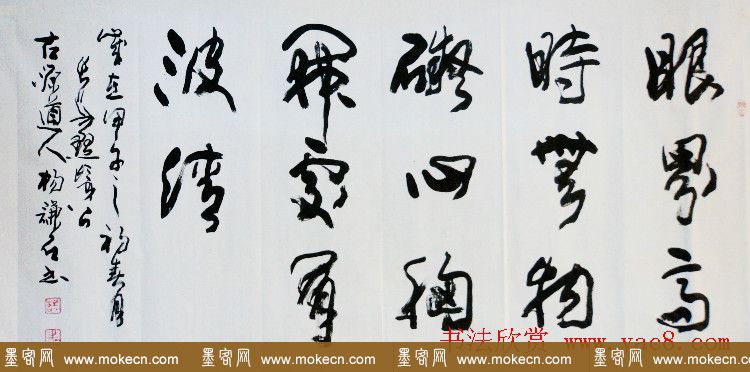 眼界高
時無物
礙心
開處有
波清
歲在甲午之初春月
道人楊
书法欣赏 www.yac8.com
墨客网 www.mokecn.com 墨客网 www.mokecn.com 墨客网 www.mokecn.com 墨客网 www.mokecn.com